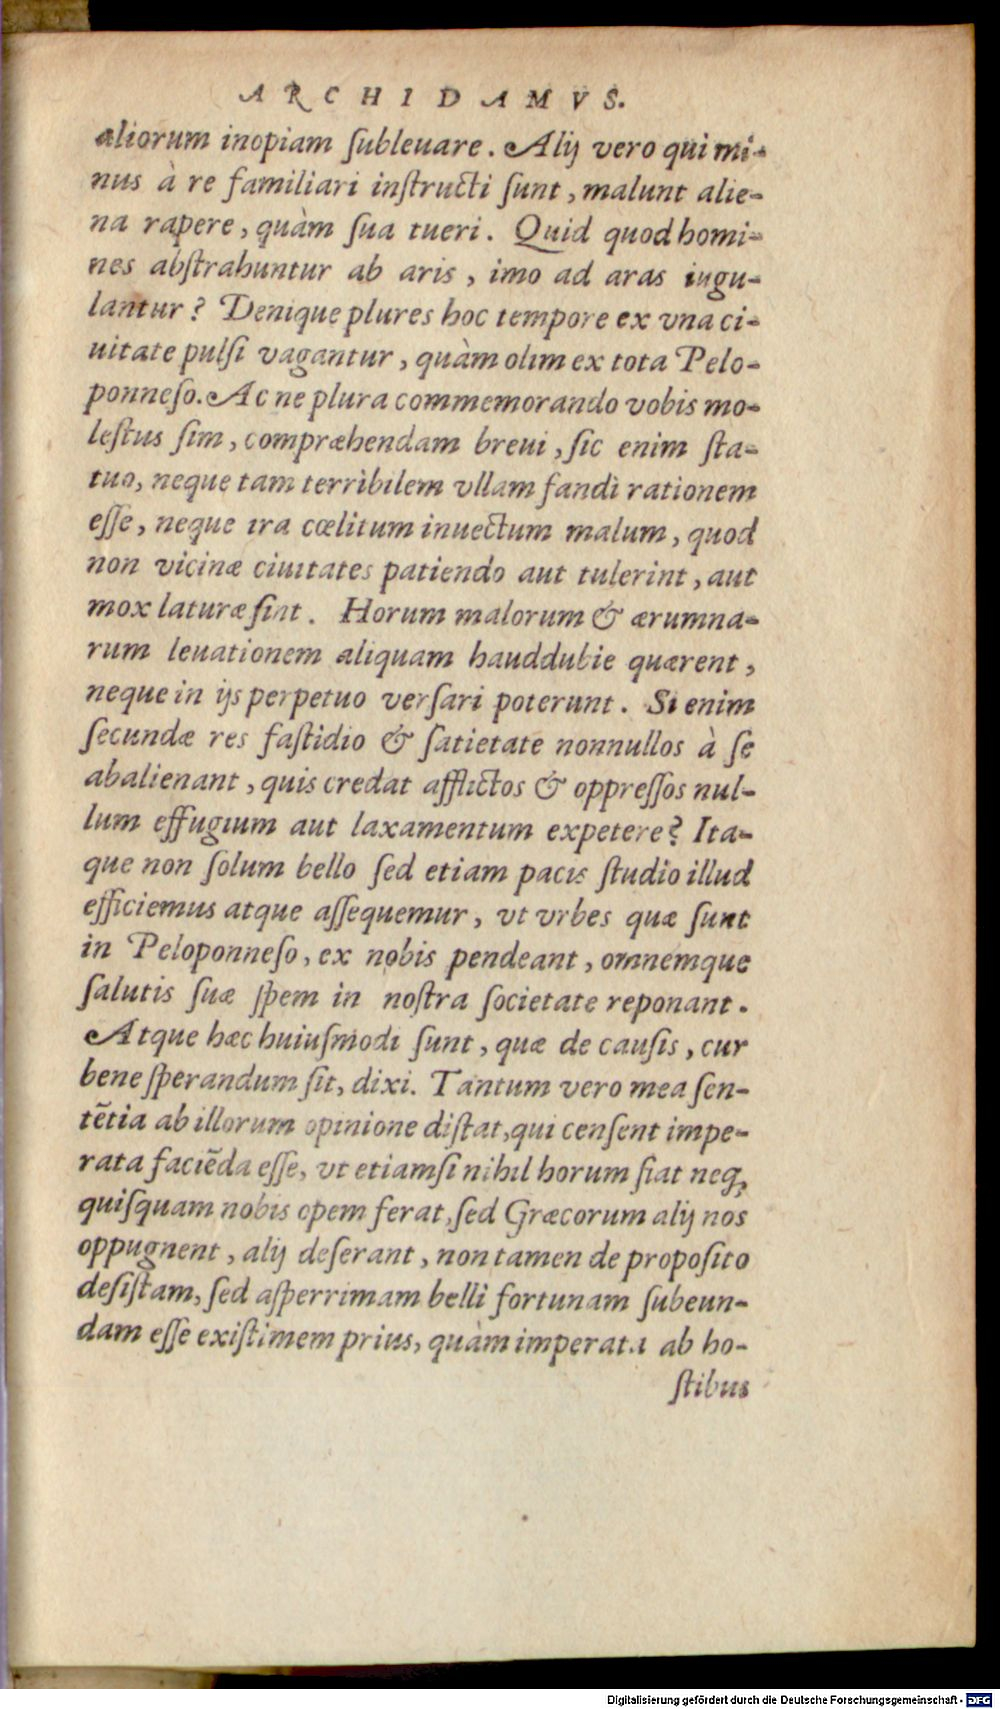 ARCHIDAMVS.
aliorum inopiam ſubleuare. Alij vero qui mi-
nus à re familiari inſtructi ſunt, malunt alie-
na rapere, quàm ſua tueri. Quid quod homi-
nes abſtrahuntur ab aris, imo ad aras iugu-
lantur? Denique plures hoc tempore ex vna ci-
uitate pulſi vagantur, quàm olim ex tota Pelo-
ponneſo. Ac ne plura commemorando vobis mo-
leſtus ſim, compræhendam breui, ſic enim ſta-
tuo, neque tam terribilem vllam fandi rationem
eſſe, neque ira cœlitum inuectum malum, quod
non vicinæ ciuitates patiendo aut tulerint, aut
mox laturæ ſint. Horum malorum & ærumna-
rum leuationem aliquam hauddubie quærent,
neque in ijs perpetuo verſari poterunt. Si enim
ſecundæ res faſtidio & ſatietate nonnullos à ſe
abalienant, quis credat afflictos & oppreſſos nul-
lum effugium aut laxamentum expetere? Ita-
que non ſolum bello ſed etiam pacis ſtudio illud
efficiemus atque aſſequemur, vt vrbes quæ ſunt
in Peloponneſo, ex nobis pendeant, omnemque
ſalutis ſuæ ſpem in noſtra ſocietate reponant.
Atque hæc huiuſmodi ſunt, quæ de cauſis, cur
bene ſperandum ſit, dixi. Tantum vero mea ſen-
tẽtia ab illorum opinione diſtat, qui cenſent impe-
rata faciẽda eſſe, vt etiamſi nihil horum fiat neq;
quiſquam nobis opem ferat, ſed Græcorum alij nos
oppugnent, alij deſerant, non tamen de propoſito
deſiſtam, ſed aſperrimam belli fortunam ſubeun-
dam eſſe exiſtimem prius, quàm imperata ab ho-
ſtibus
Digitalisierung gefördert durch die Deutsche Forschungsgemeinschaft - DFG